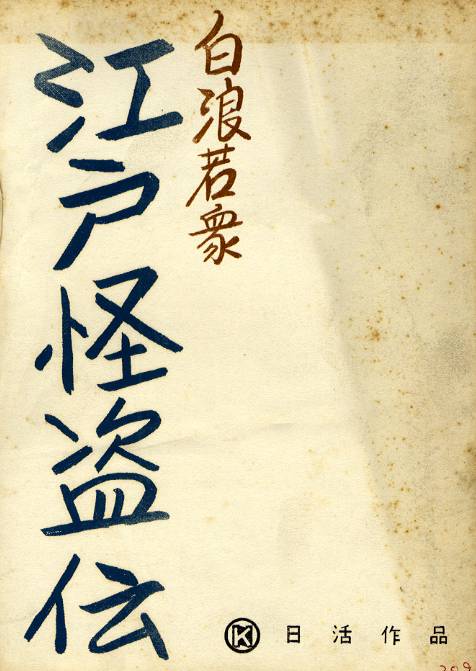 白浪若衆
江戸怪盗伝
日活作品